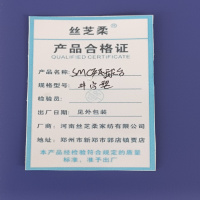 丝芝柔®
产品合格证
QUALIFIED CERTIFICATE
产品名称:
规格型号: 井字架
检验员:
出厂日期: 见外包装
厂商: 河南丝芝柔家纺有限公司
地址: 郑州市新郑市郭店镇贾店
本产品经检验符合规定的质量
标准,准予出厂